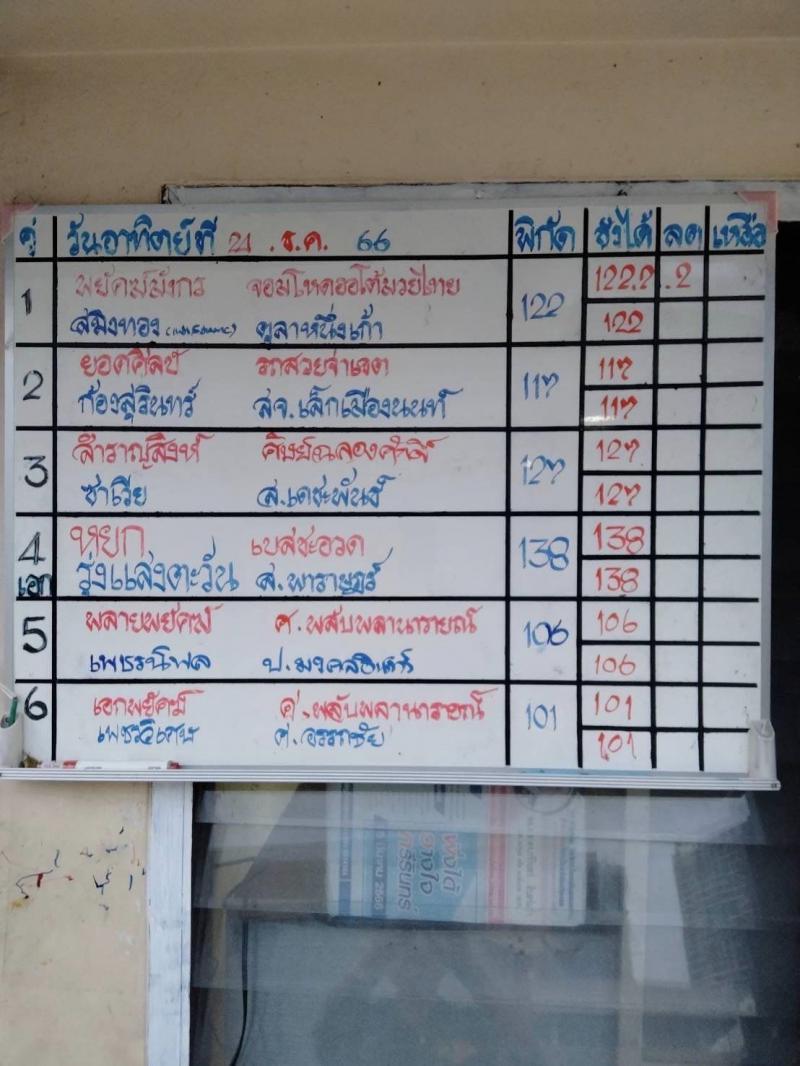 คู่ วันอาทิตย์ที่ 21 . ธ.ค. 66 พิกัด ชั่งได้ ลด เหลือ
1 พยัคฆ์มังกร จอมโหดออโต้มวยไทย 122 122.2 .2
สมิงทอง ตุลาหนึ่งเก้า 122
2 ยอดศิลป์ รถสวยจ่าเจต 117 117
ก้องสุรินทร์ สจ.เล็กเมืองนนท์ 117
3 สำราญสิงห์ ศิษย์ฉลองศักดิ์ 127 127
ซาเวีย ส.เดชะพันธ์ 127
4 หยก เบสชะอวด 138 138
เอก รุ่งแสงตะวัน ส.พาราษฎร์ 138
5 พลายพยัคฆ์ ศ.พลับพลานารายณ์ 106 106
เพชรนิพล ป. 106
6 เอกพยัคฆ์ ศ.พลับพลานารายณ์ 101 101
เพชรวิเศษ ศ.อรรถชัย 101
พึงได้
วางใจ